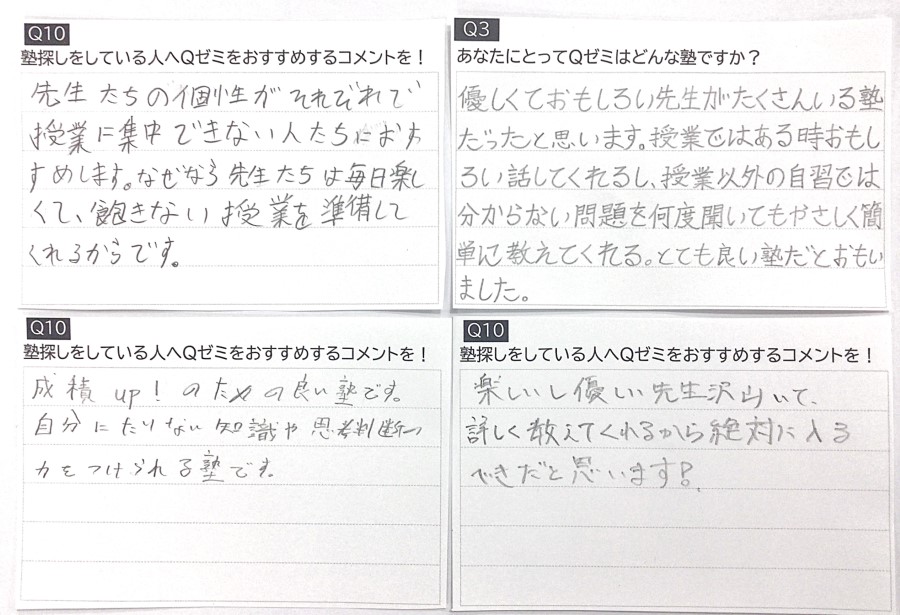 Q10
塾探しをしている人へQゼミをおすすめするコメントを！
先生たちの個性がそれぞれで
授業に集中できない人たちにおす
すめします。なぜなら先生たちは毎日楽し
くて、飽きない授業を準備して
くれるからです。
Q3
あなたにとってQゼミはどんな塾ですか？
優しくておもしろい先生がたくさんいる塾
だったと思います。授業ではある時おもし
ろい話してくれるし、授業以外の自習では
分からない問題を何度聞いてもやさしく簡
単に教えてくれる。とても良い塾だとおもい
ました。
Q10
塾探しをしている人へQゼミをおすすめするコメントを！
成積 up! のための良い塾です。
自分にたりない知識や思考判断
力をつけられる塾です。
Q10
塾探しをしている人へQゼミをおすすめするコメントを！
楽しいし優しい先生沢山いて、
詳しく教えてくれるから絶対に入る
べきだと思います!